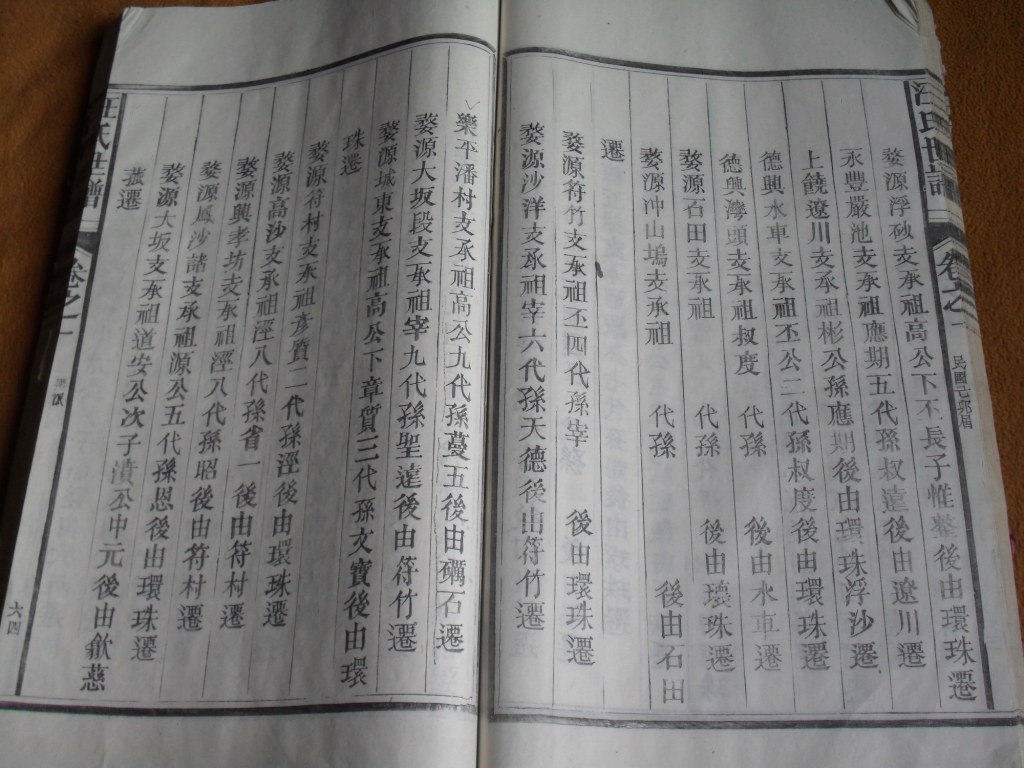 汪氏世譜
卷之一
婺源浮砂支承祖高公下不長子惟整後由環珠遷
永豐嚴池支承祖應期五代孫叔達後由遼川遷
上饒遼川支承祖彬公孫應期後由環珠浮沙遷
德興水車支承祖丕公二代孫叔度後由環珠遷
德興灣頭支承祖叔度 代孫 後由水車遷
婺源石田支承祖 代孫 後由環珠遷
婺源冲山塢支承祖 代孫 後由石田
遷
婺源符竹支承祖丕四代孫宰 後由環珠遷
婺源沙洋支承祖宰六代孫天德後出符竹遷
樂平潘村支承祖高公九代孫蔓五後由礪石遷
婺源大坂段支承祖宰九代孫聖達後由符竹遷
婺源城東支承祖高公下章質三代孫文寶後由環
珠遷
婺源符村支承祖彥質二代孫淫後由環珠遷
婺源高沙支承祖淫八代孫省一後由符村遷
婺源興孝坊支承祖淫八代孫昭後由符村遷
婺源鳳沙諸支承祖源公五代孫恩後由環珠遷
婺源大坂支承祖道安公次子漬公中元後由歙慈
菰遷
汪氏世譜
卷之一
六四